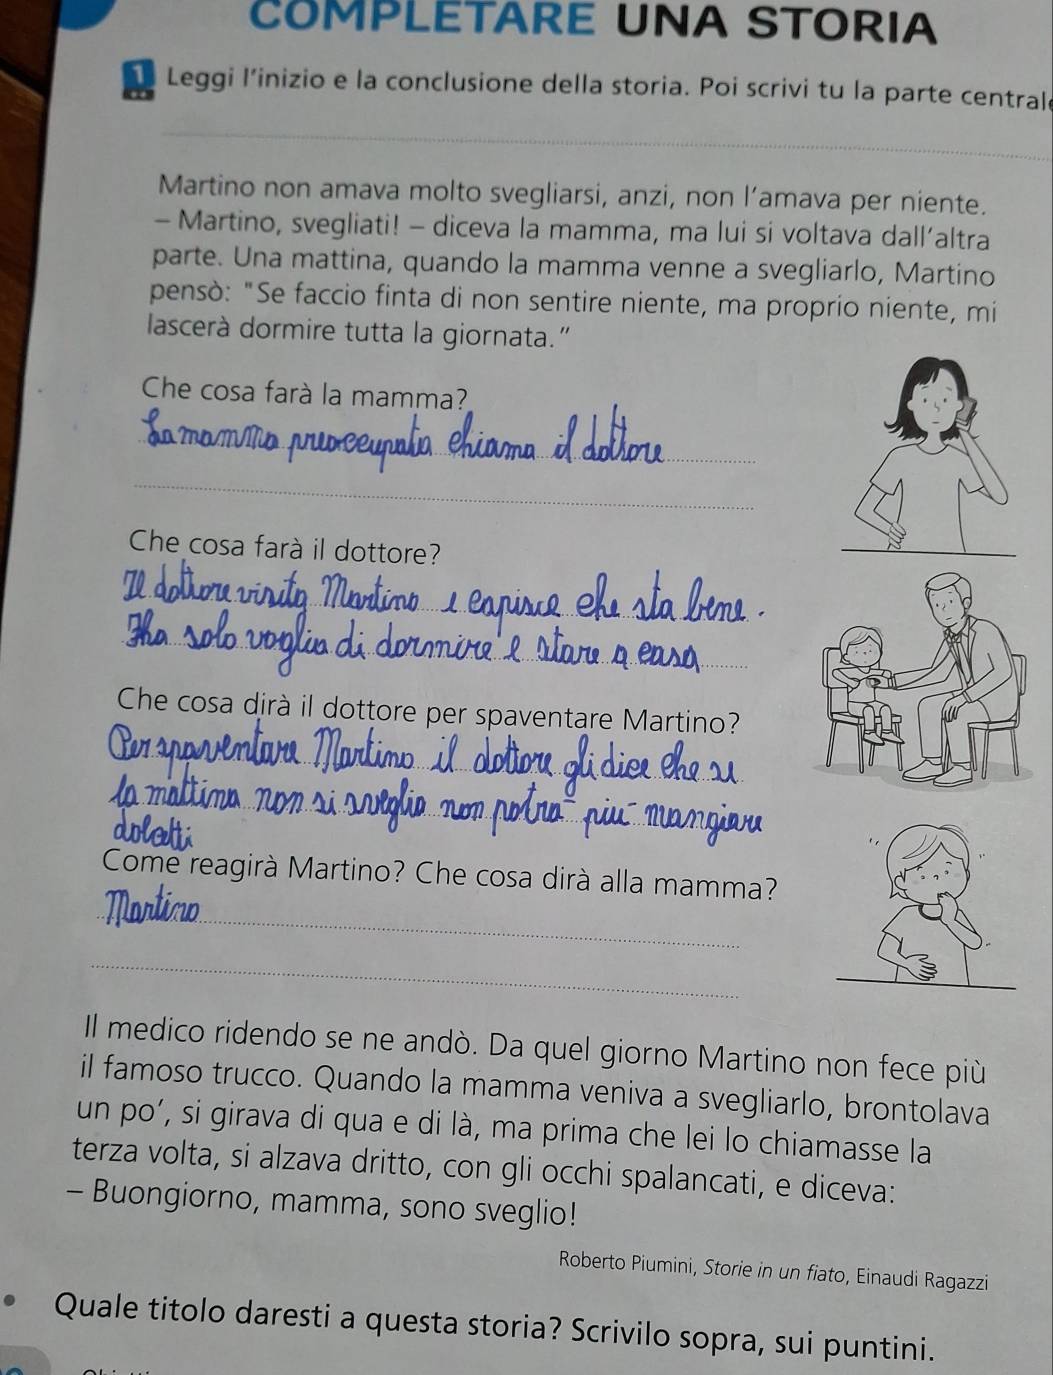 COMPLETARE UNA STORIA
1 Leggi l'inizio e la conclusione della storia. Poi scrivi tu la parte centrale
Martino non amava molto svegliarsi, anzi, non l'amava per niente.
– Martino, svegliati! – diceva la mamma, ma lui si voltava dall'altra
parte. Una mattina, quando la mamma venne a svegliarlo, Martino
pensò: "Se faccio finta di non sentire niente, ma proprio niente, mi
lascerà dormire tutta la giornata."
Che cosa farà la mamma?
La mamma preoccupata chiama il dottore
Che cosa farà il dottore?
Il dottore visita Martino e capisce che sta bene.
Ha solo voglia di dormire e stare a casa
Che cosa dirà il dottore per spaventare Martino?
Per spaventare Martino il dottore gli dice che se
la mattina non si sveglia non potrà più mangiare
dolcetti
Come reagirà Martino? Che cosa dirà alla mamma?
Martino
Il medico ridendo se ne andò. Da quel giorno Martino non fece più
il famoso trucco. Quando la mamma veniva a svegliarlo, brontolava
un po', si girava di qua e di là, ma prima che lei lo chiamasse la
terza volta, si alzava dritto, con gli occhi spalancati, e diceva:
– Buongiorno, mamma, sono sveglio!
Roberto Piumini, Storie in un fiato, Einaudi Ragazzi
• Quale titolo daresti a questa storia? Scrivilo sopra, sui puntini.